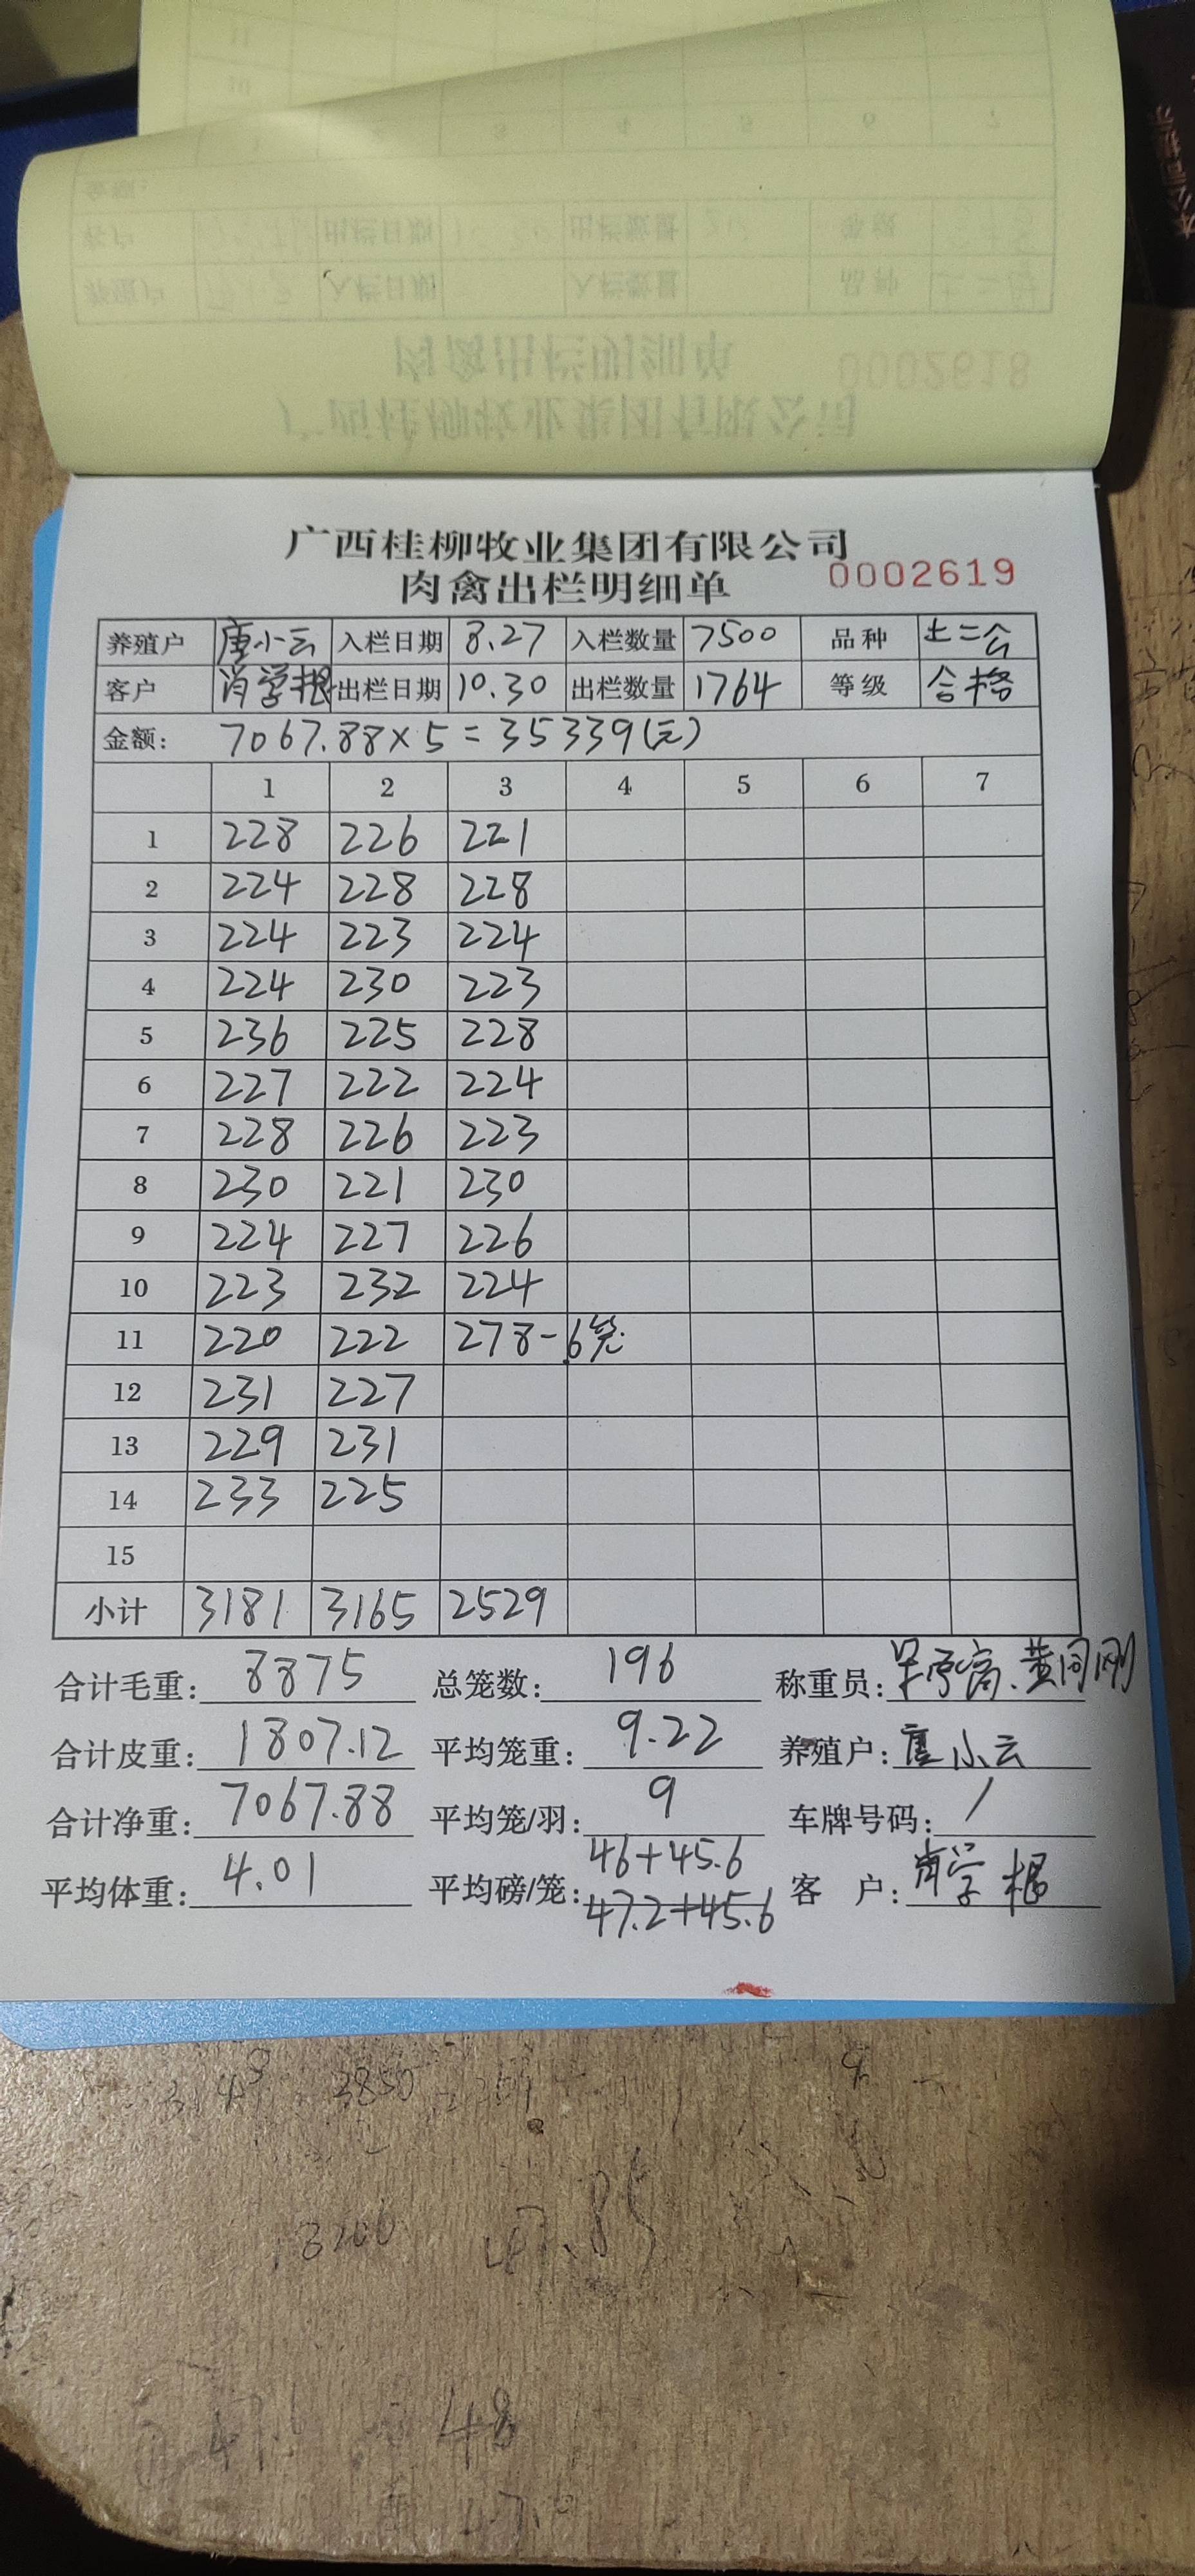 广西桂柳牧业集团有限公司
肉禽出栏明细单 0002619
养殖户 唐小云 入栏日期 8.27 入栏数量 7500 品种 土二公
客户 肖学根 出栏日期 10.30 出栏数量 1764 等级 合格
金额: 7067.88×5=35339(元)
1 2 3 4 5 6 7
1 228 226 221
2 224 228 228
3 224 223 224
4 224 230 223
5 236 225 228
6 227 222 224
7 228 226 223
8 230 221 230
9 224 227 226
10 223 232 224
11 220 222 278-6笼.
12 231 227
13 229 231
14 233 225
15
小计 3181 3165 2529
合计毛重: 8875 总笼数: 196 称重员: 黄同刚
合计皮重: 1807.12 平均笼重: 9.22 养殖户: 唐小云
合计净重: 7067.88 平均笼/羽: 9 车牌号码: /
平均体重: 4.01 平均磅/笼: 46+45.6 客户: 肖学根
47.2+45.6